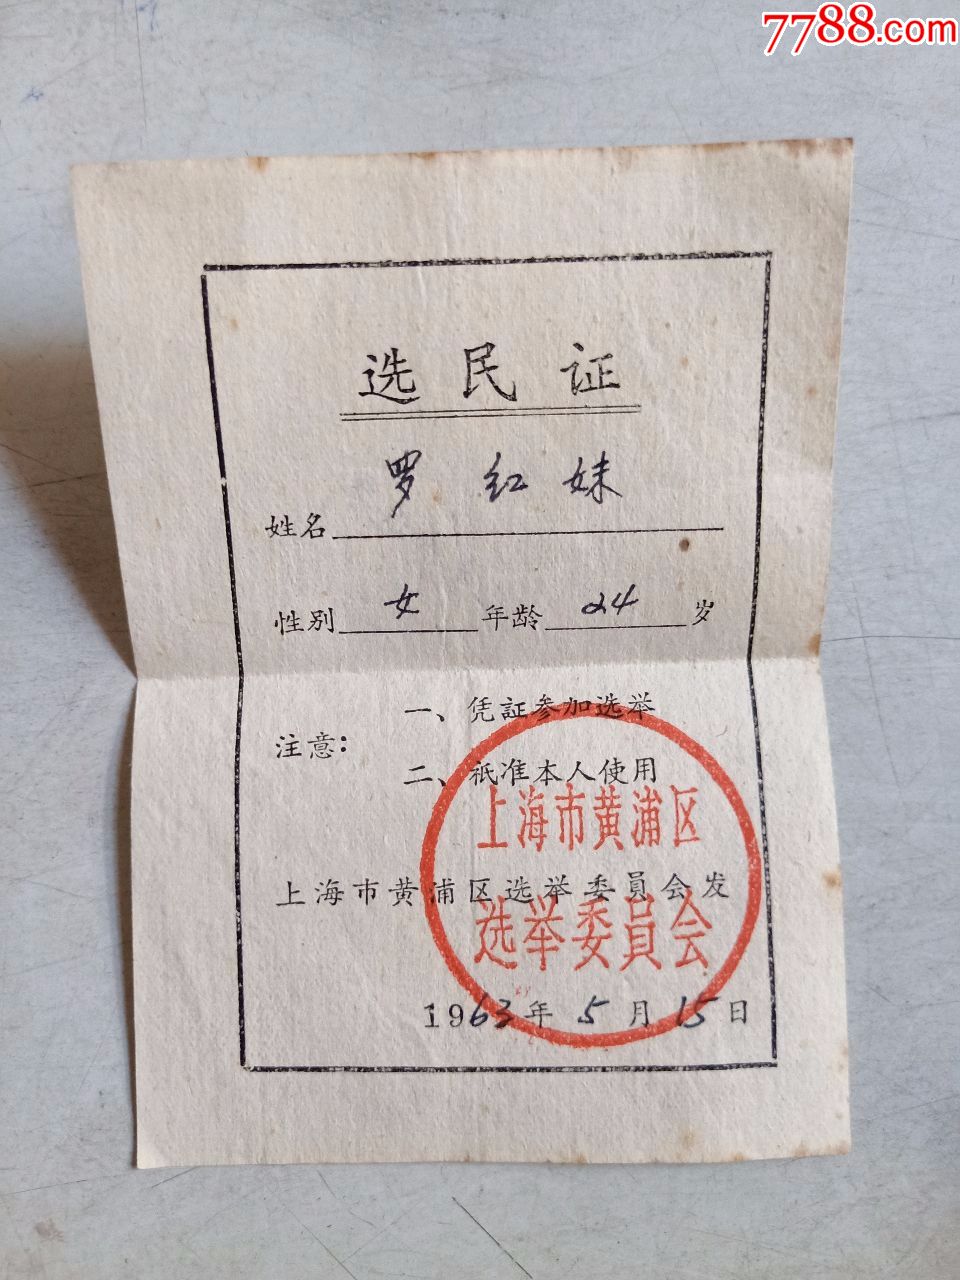 7788.com
选民证
姓名 罗红妹
性别 女 年龄 24 岁
注意：
一、凭証参加选举
二、祇准本人使用
上海市黄浦区
上海市黄浦区选举委員会发
选举委員会
1963年5月15日